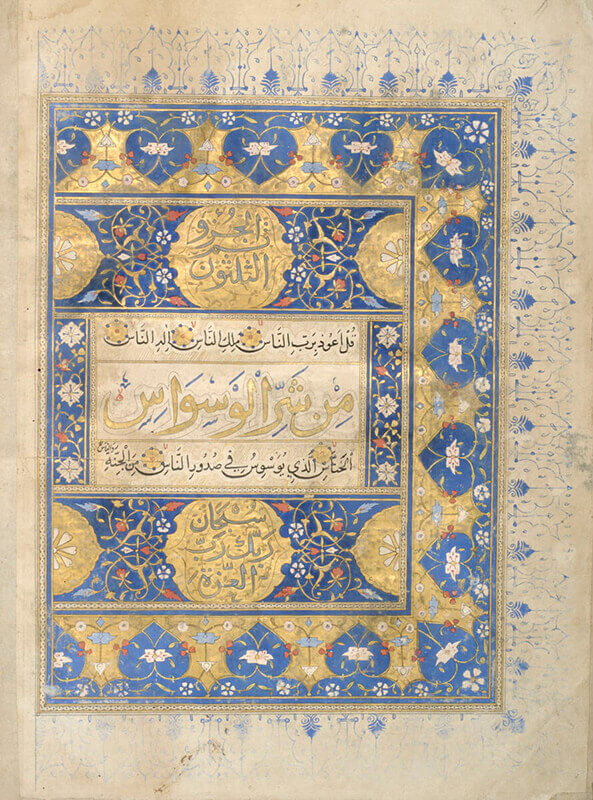 تم الجزو
الثلثون
قُل أَعوذُ بِرَبِّ النَّاسِ مَلِكِ النَّاسِ إِلهِ النَّاسِ
مِن شَرِّ الوَسوَاسِ
الخَنَّاسِ الَّذي يُوَسوِسُ في صُدُورِ النَّاسِ مِنَ الجِنَّةِ والناس
سبحان
ربك رب
العزة